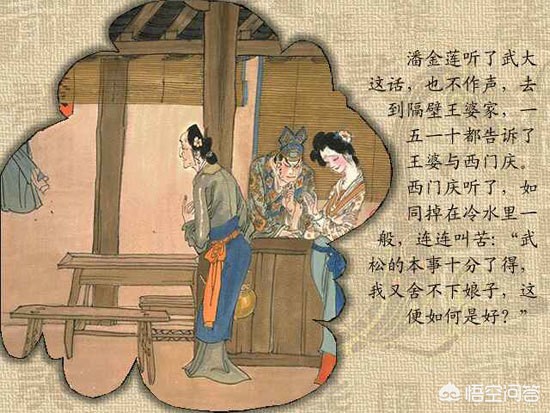 潘金莲听了武大
这话，也不作声，去
到隔壁王婆家，一
五一十都告诉了
王婆与西门庆。
西门庆听了，如
同掉在冷水里一
般，连连叫苦：“武
松的本事十分了得，
我又舍不下娘子，这
便如何是好？”
悟空问答